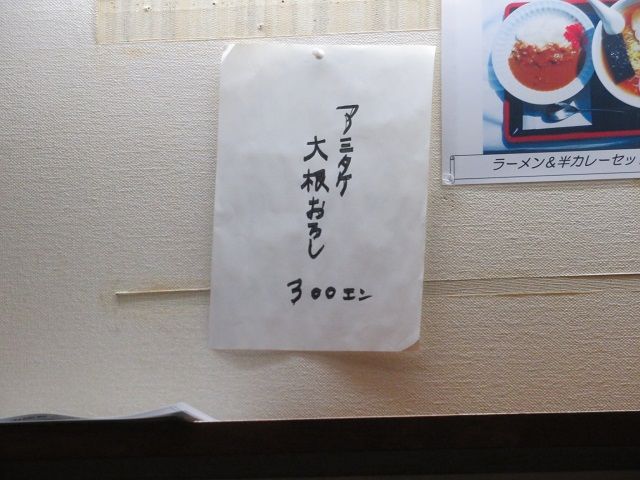 アミタケ
大根おろし
300エン
ラーメン&半カレーセッ